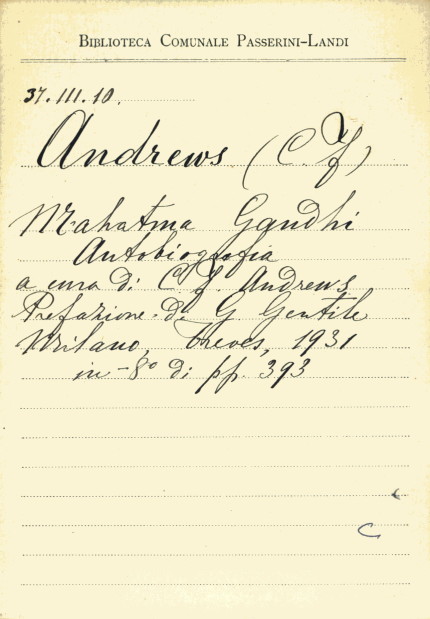 BIBLIOTECA COMUNALE PASSERINI-LANDI
37.III.10.
Andrews (C. F)
Mahatma Gandhi
Autobiografia
a cura di C. F. Andrews
Prefazione di G. Gentile
Milano, Treves, 1931
in-8° di pp. 393